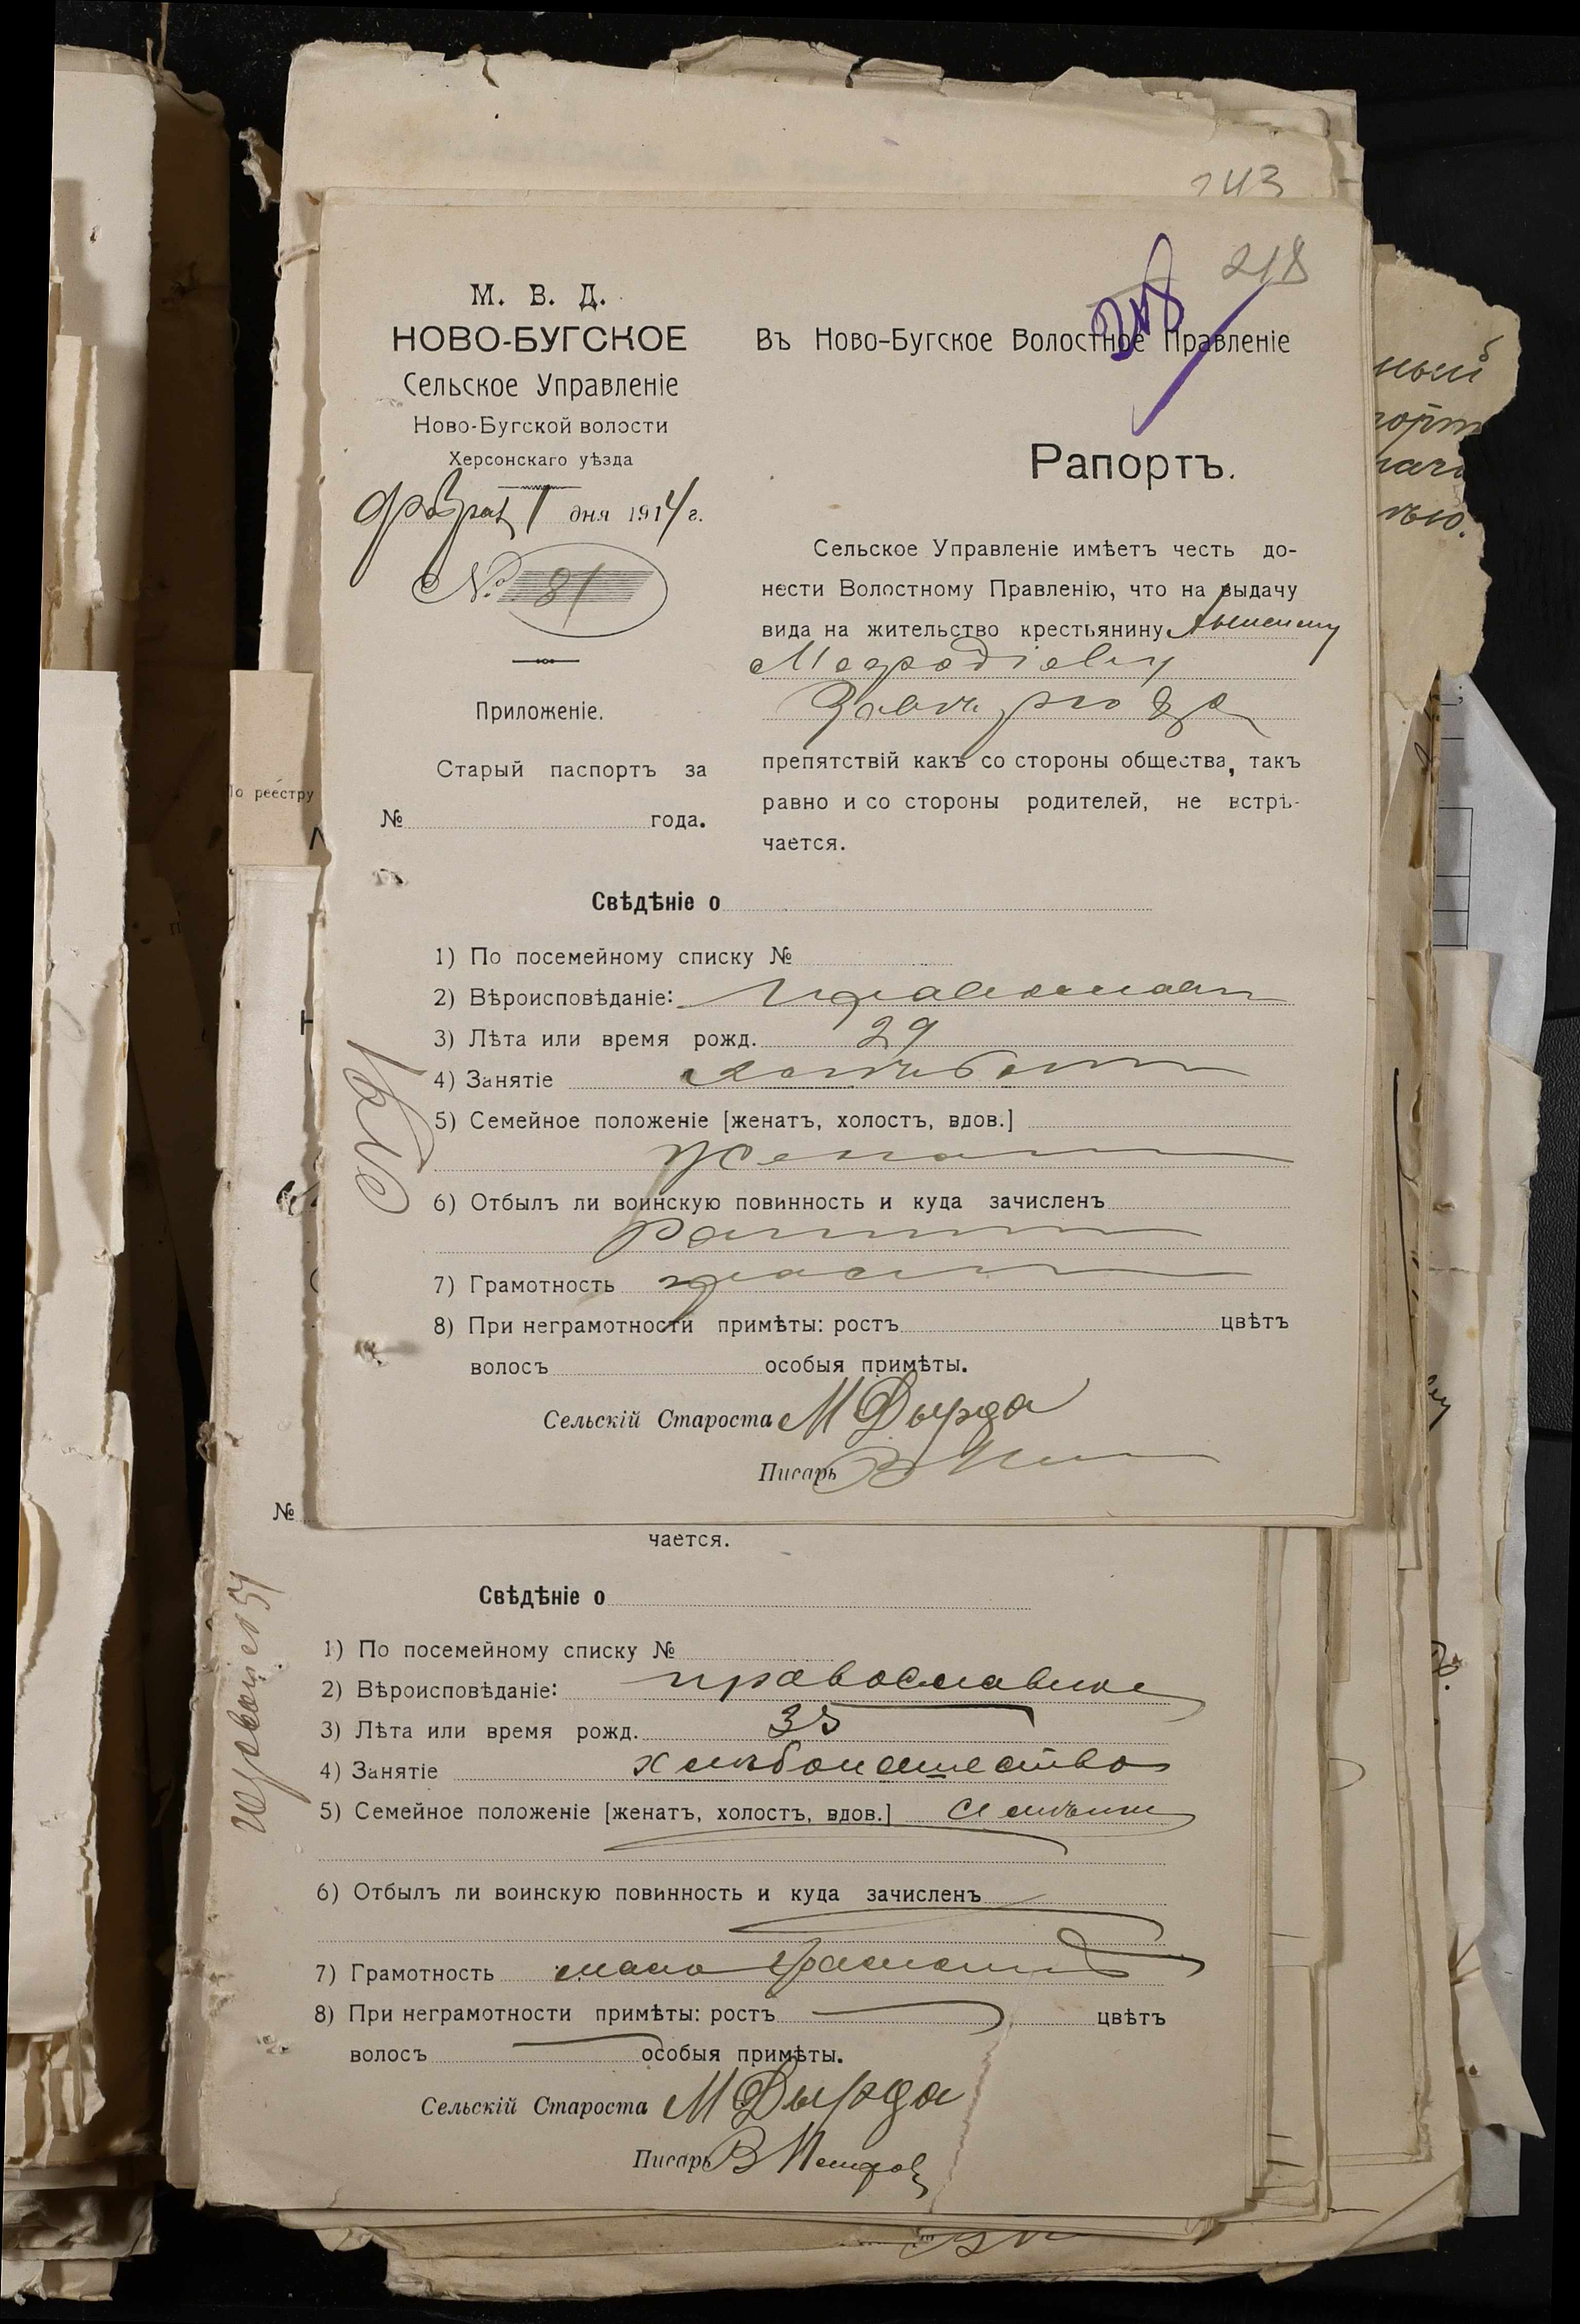 243
218
М. В. Д.
НОВО-БУГСКОЕ
Сельское Управленіе
Ново-Бугской волости
Херсонскаго уѣзда
1 дня 1914 г.
№ 81
Приложеніе.
Старый паспортъ за
№ года.
Въ Ново-Бугское Волостное Правленіе
Рапортъ.
Сельское Управленіе имѣетъ честь до-
нести Волостному Правленію, что на выдачу
вида на жительство крестьянину
препятствій какъ со стороны общества, такъ
равно и со стороны родителей, не встрѣ-
чается.
Свѣдѣніе о
1) По посемейному списку №
2) Вѣроисповѣданіе:
3) Лѣта или время рожд. 29
4) Занятіе
5) Семейное положеніе [женатъ, холостъ, вдов.]
Женат
6) Отбылъ ли воинскую повинность и куда зачисленъ
7) Грамотность
8) При неграмотности примѣты: ростъ цвѣтъ
волосъ особыя примѣты.
Сельскій Староста М Дырда
Писарь В
По реестру
№
чается.
Свѣдѣніе о
1) По посемейному списку №
2) Вѣроисповѣданіе: православное
3) Лѣта или время рожд. 35
4) Занятіе хлѣбопашество
5) Семейное положеніе [женатъ, холостъ, вдов.]
6) Отбылъ ли воинскую повинность и куда зачисленъ
7) Грамотность мало
8) При неграмотности примѣты: ростъ цвѣтъ
волосъ особыя примѣты.
Сельскій Староста М Дырда
Писарь В